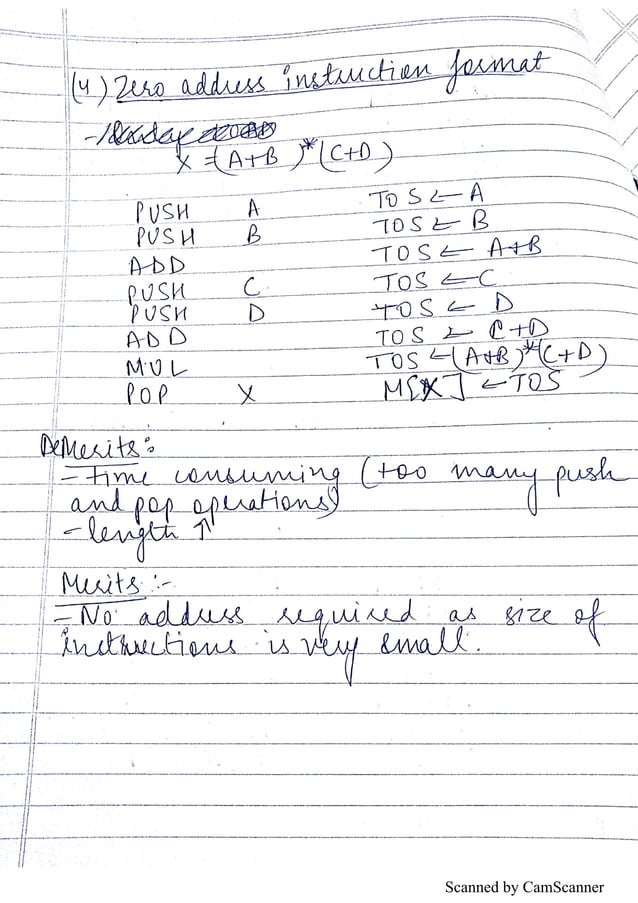 (4) Zero address instruction format
X = (A+B)*(C+D)
PUSH A TOS ← A
PUSH B TOS ← B
ADD TOS ← A+B
PUSH C TOS ← C
PUSH D TOS ← D
ADD TOS ← C+D
MUL TOS ← (A+B)*(C+D)
POP X M[X] ← TOS
DeMerits:
- Time consuming (too many push
and pop operations)
- length ↑
Merits :-
- No address required as size of
instructions is very small.
Scanned by CamScanner